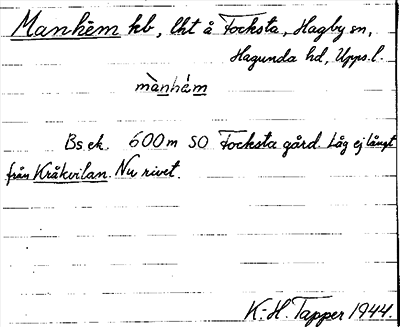 Manhem kb, lht å Focksta, Hagby sn,
Hagunda hd, Upps. l.
mànhém
Bs. ek. 600 m SO Focksta gård. Låg ej långt
från Kråkvilan. Nu rivet.
K.-H. Tapper 1944.